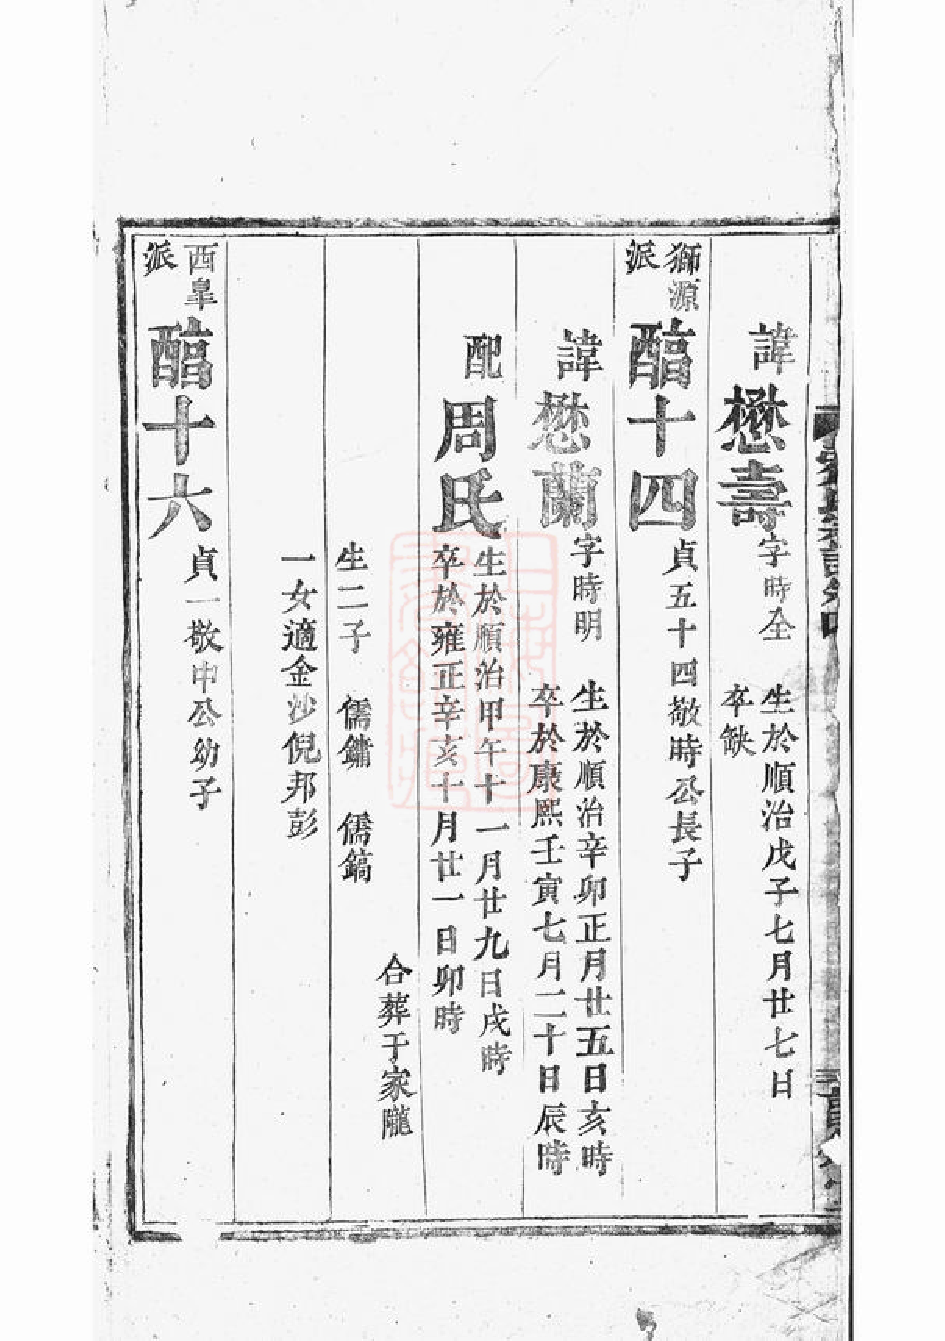 諱懋壽字時全
生於順治戊子七月廿七日
卒缺
獅源
派
醕十四貞五十四敬時公長子
諱懋蘭字時明
生於順治辛卯正月廿五日亥時
卒於康熙壬寅七月二十日辰時
配周氏
生於順治甲午十一月廿九日戌時
卒於雍正辛亥十月廿一日卯時
合葬于家隴
生二子 儒鏽 儒鎬
一女適金沙倪邦彭
西臯
派
醕十六貞一敬中公幼子